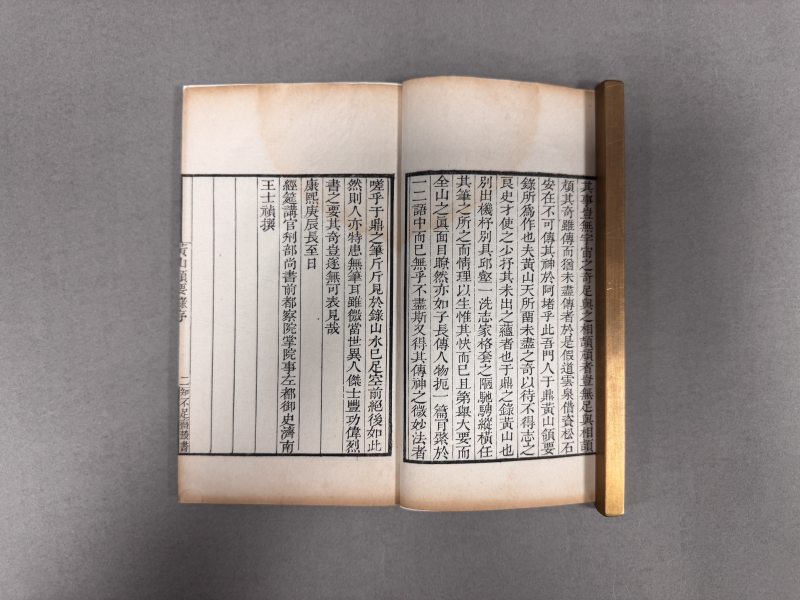 其事豈無宇宙之奇足與之相頡頏者豈無足與相頡
頏其奇雖傳而猶未盡傳者於是假道雲泉借資松石
安在不可傳其神於阿堵乎此吾門人于鼎黃山領要
錄所爲作也夫黃山天所留未盡之奇以待不得志之
良史才使之少抒其未出之蘊者也于鼎之錄黃山也
別出機杼別具邱壑一洗志家格套之陋馳騁縱橫任
其筆之所之而情理以生惟其快而已且第舉大要而
全山之眞面目瞭然亦如子長傳人物扼一篇肯綮於
一二語中而已無乎不盡斯又得其傳神之微妙法者
嗟乎于鼎之筆斤斤見於錄山水已足空前絕後如此
然則人亦特患無筆耳雖微當世異人傑士豐功偉烈
書之要其奇豈遂無可表見哉
康熙庚辰長至日
經筵講官刑部尚書前都察院掌院事左都御史濟南
王士禎撰
黃山領要錄序
二
知不足齋叢書